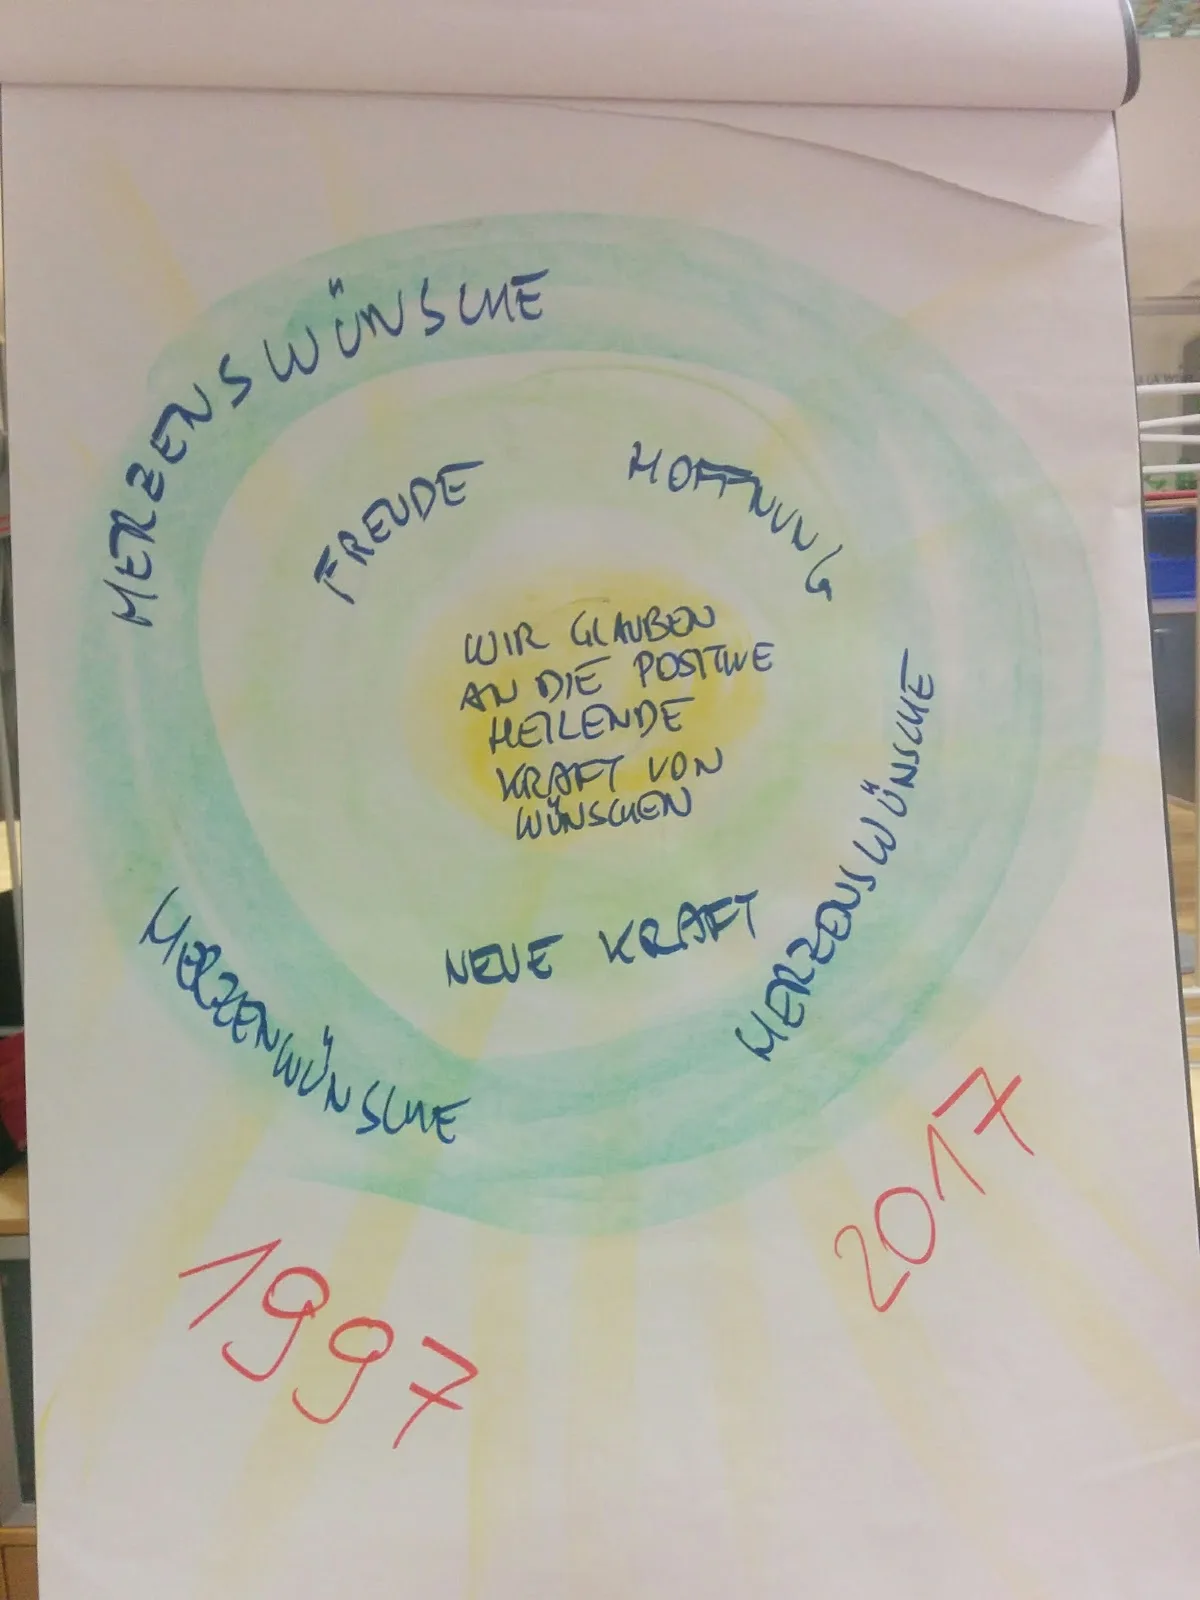 HERZENSWÜNSCHE
FREUDE
HOFFNUNG
WIR GLAUBEN
AN DIE POSITIVE
HEILENDE
KRAFT VON
WÜNSCHEN
HERZENSWÜNSCHE
NEUE KRAFT
HERZENWÜNSCHE
1997
2017